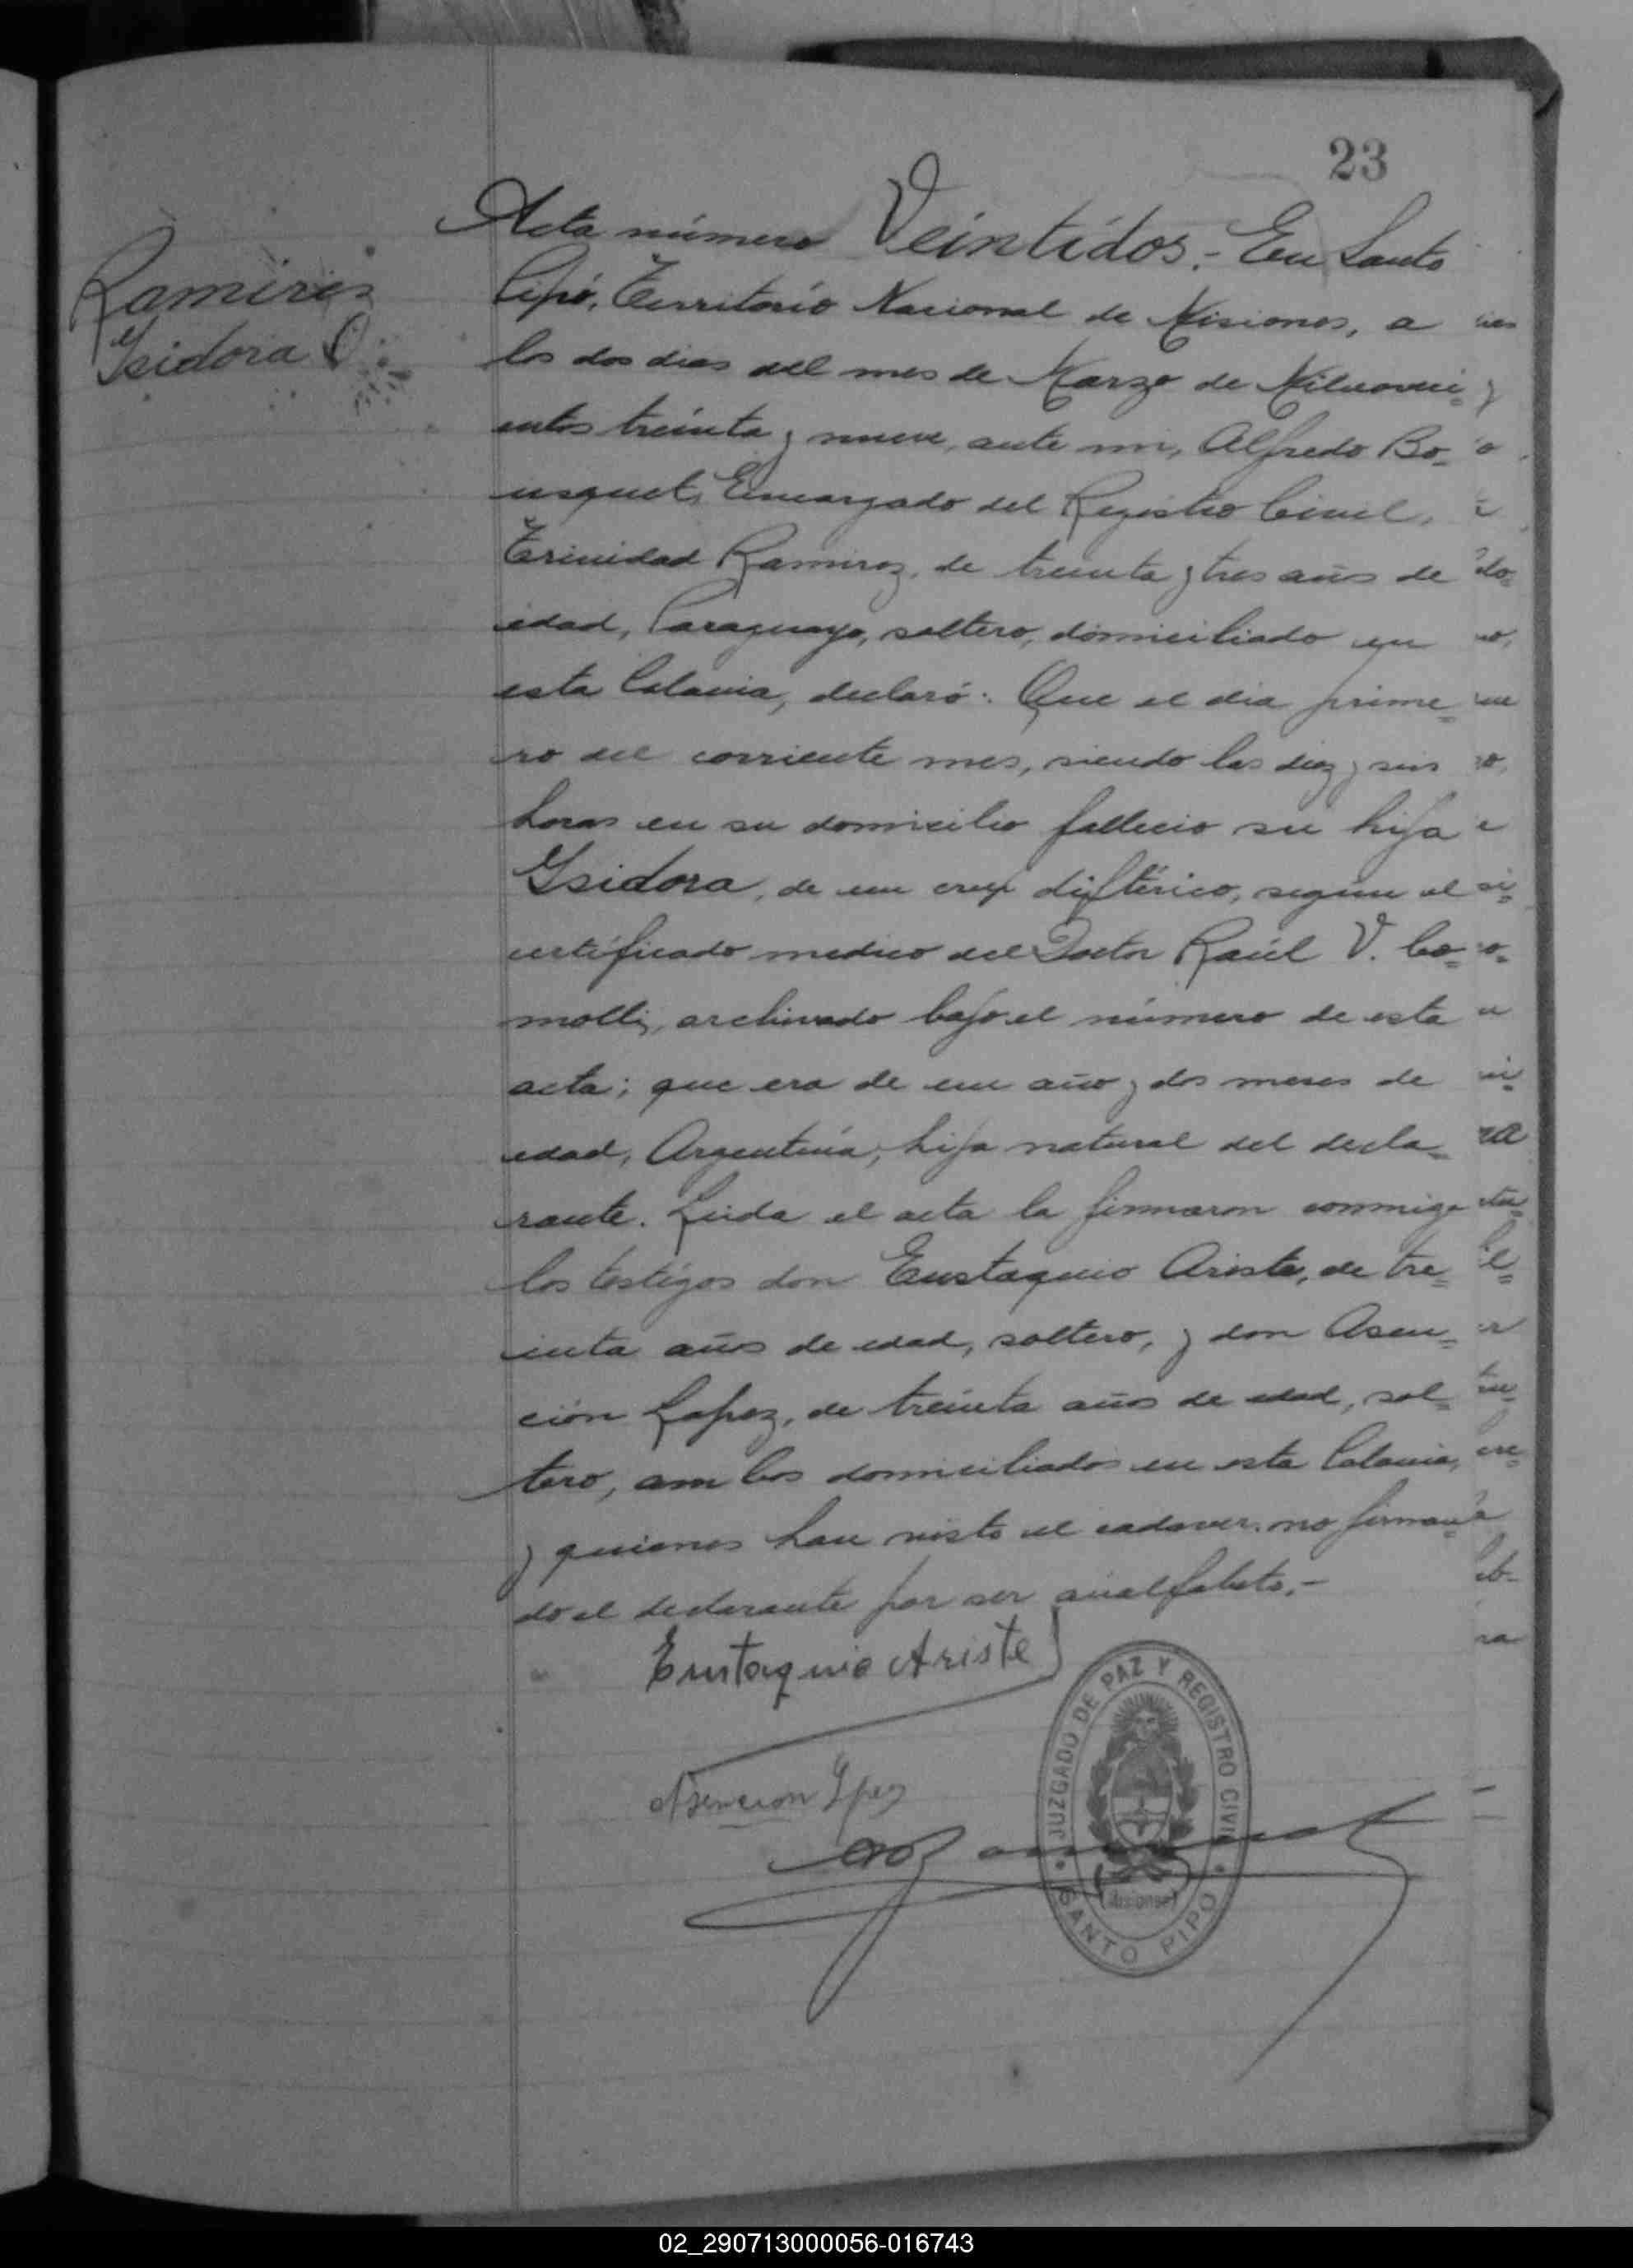 23
Ramirez
Isidora
Acta número Veintidos.- En Santo
Pipó, Territorio Nacional de Misiones, a
los dos dias del mes de Marzo de Milnoveci=
entos treinta y nueve, ante mi, Alfredo Bo=
usquet, Encargado del Registro Civil,
Trinidad Ramirez, de treinta y tres años de
edad, Paraguayo, soltero, domiciliado en
esta Colonia, declaró: Que el dia prime=
ro del corriente mes, siendo las diez y seis
horas en su domicilio fallecio su hija
Isidora, de un crup diftérico, según el
certificado medico del Doctor Raúl V. Co=
molli, archivado bajo el número de esta
acta; que era de un año y dos meses de
edad, Argentina, hija natural del decla=
rante. Leida el acta la firmaron conmigo
los testigos don Eustaquio Ariste, de tre=
inta años de edad, soltero, y don Asen=
ción Lopez, de treinta años de edad, sol=
tero, ambos domiciliados en esta Colonia,
y quienes han visto el cadaver. no firman=
do el declarante por ser analfabeto.-
Eustaquio Ariste
Asencion Lpez
JUZGADO DE PAZ Y REGISTRO CIVIL
(Misiones)
SANTO PIPO
02_290713000056-016743